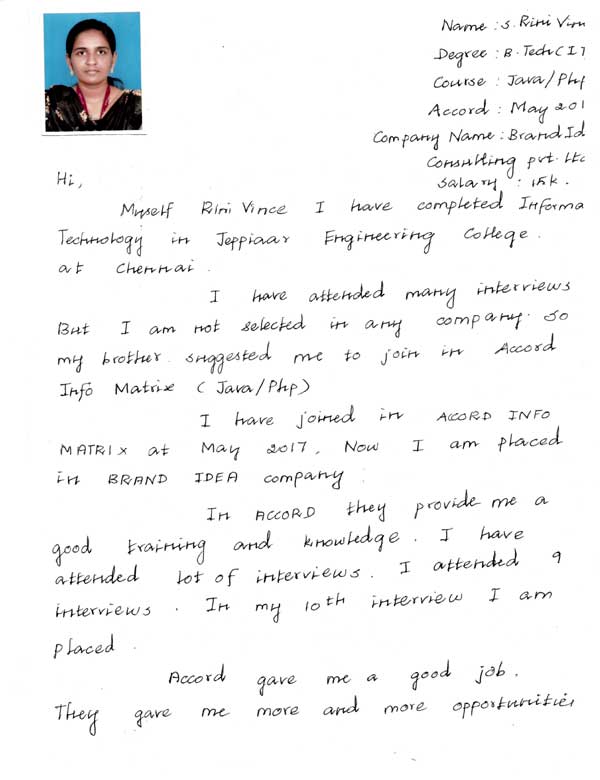 Name : S. Rini Vin
Degree : B. Tech (I
Course : Java/Php
Accord : May 201
Company Name : Brand Id
Consulting pvt. Ltd
Salary : 15k.
Hi,
Myself Rini Vince I have completed Informa
Technology in Jeppiaar Engineering College.
at Chennai.
I have attended many interviews
But I am not selected in any company. So
my brother suggested me to join in Accord
Info Matrix (Java/Php)
I have joined in ACCORD INFO
MATRIX at May 2017. Now I am placed
in BRAND IDEA company.
In ACCORD they provide me a
good training and knowledge. I have
attended lot of interviews. I attended 9
interviews. In my 10th interview I am
placed.
Accord gave me a good job.
They gave me more and more opportunities